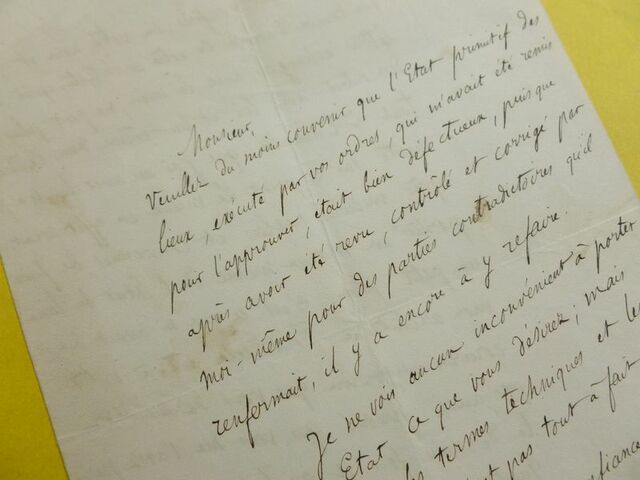 Monsieur,
Veuillez du moins convenir que l'Etat primitif des
lieux, exécuté par vos ordres, qui m'avait été remis
pour l'approuver, était bien défectueux, puisque
après avoir été revu, contrôlé et corrigé par
moi-même pour des parties contradictoires qu'il
renfermait, il y a encore à y refaire.
Je ne vois aucun inconvénient à porter
Etat ce que vous désirez; mais
les termes techniques et les
pas tout à fait